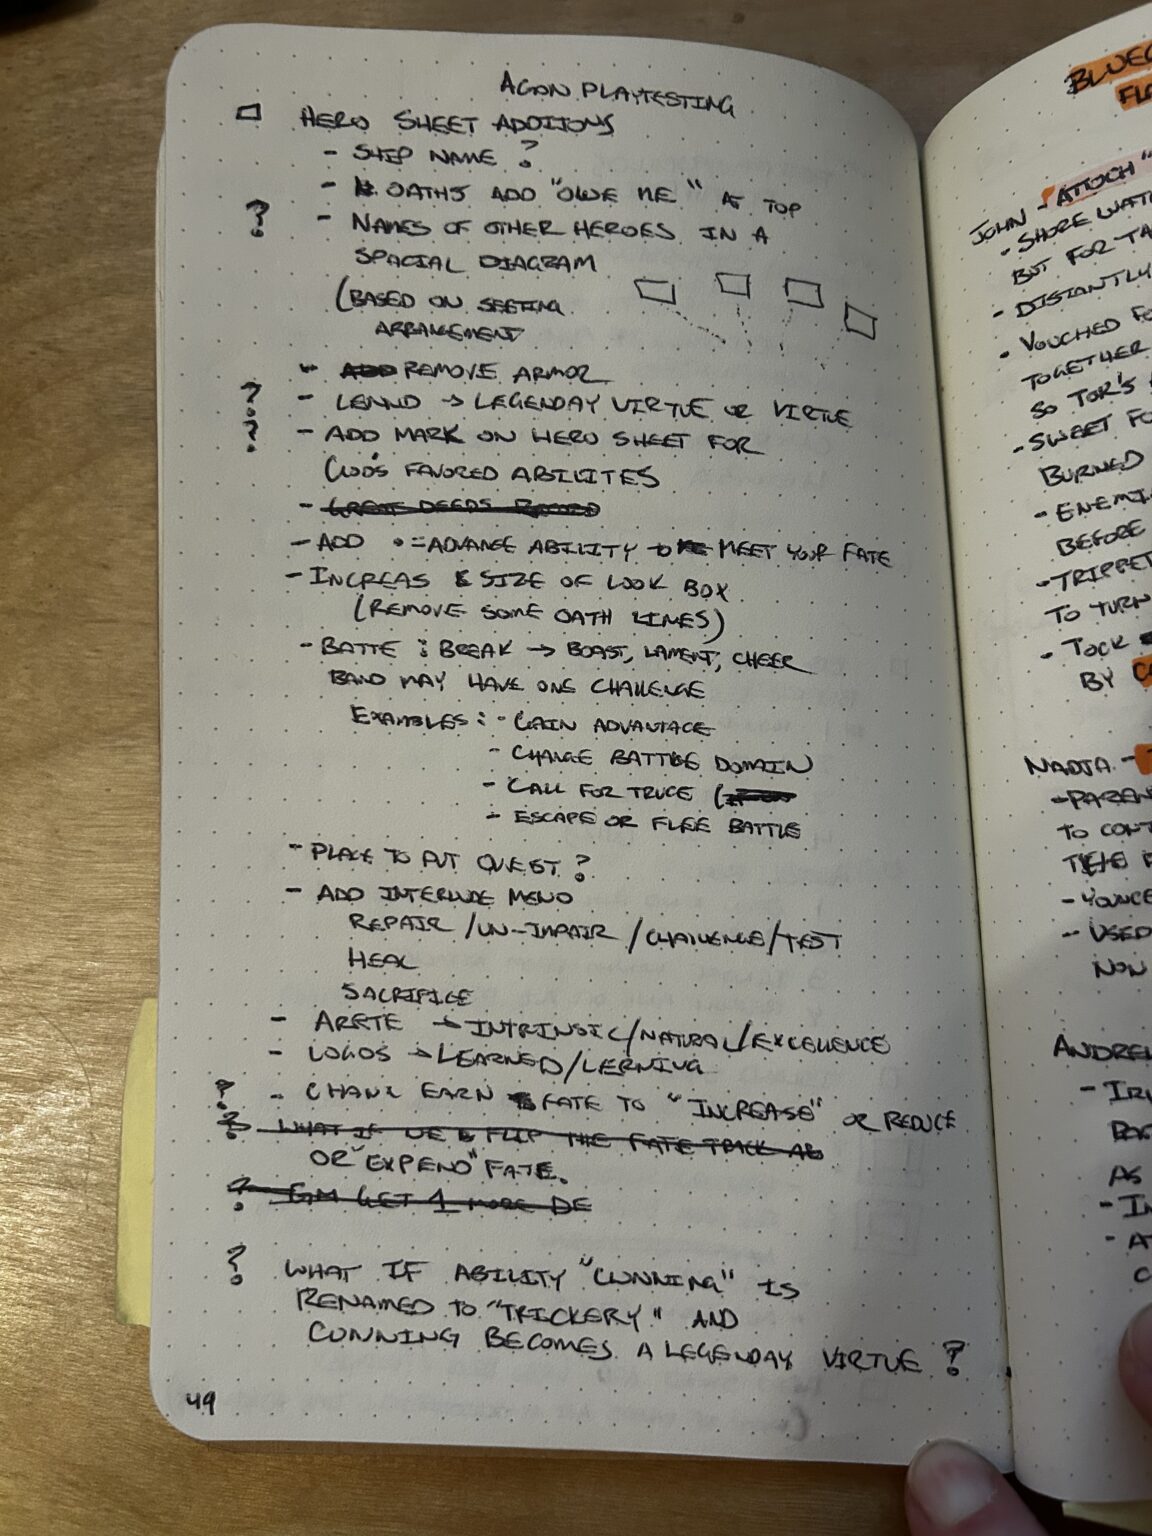 AGON PLAYTESTING
HERO SHEET ADDITIONS
- SHIP NAME ?
- OATHS ADD "OWE ME" AT TOP
? - NAMES OF OTHER HEROES IN A
SPACIAL DIAGRAM
(BASED ON SEETING
ARRANGEMENT
- ADD REMOVE ARMOR
? - LEGENDAY VIRTUE OR VIRTUE
? - ADD MARK ON HERO SHEET FOR
GOD'S FAVORED ABILITES
- GREAT DEEDS RECORD
- ADD • = ADVANCE ABILITY MEET YOUR FATE
- INCREAS SIZE OF LOOK BOX
(REMOVE SOME OATH LINES)
- BATTE : BREAK → BOAST, LAMENT, CHEER
BAND MAY HAVE ONE CHALLENGE
EXAMPLES : - GAIN ADVANTAGE
- CHANGE BATTLE DOMAIN
- CALL FOR TRUCE (
- ESCAPE OR FLEE BATTLE
- PLACE TO PUT QUEST ?
- ADD INTERLUDE MENU
REPAIR / UN-IMPAIR / CHALLENGE / TEST
HEAL
SACRIFICE
- ARETE → INTRINSIC/NATURAL/EXCELLENCE
- LOGOS → LEARNED/LERNING
? - EARN FATE TO "INCREASE" OR REDUCE
? WHAT IF WE FLIP THE FATE TRACK
OR "EXPEND" FATE.
? GM GET 1 MORE
? WHAT IF ABILITY "CUNNING" IS
RENAMED TO "TRICKERY" AND
CUNNING BECOMES A LEGENDAY VIRTUE ?
49
JOHN - ATTOCH "
- SHORE
BUT FOR
- DISTANTLY
- VOUCHED
TOGETHER
SO TOR'S
- SWEET
BURNED
-
BEFORE
-
TO TURN
- TOCK
BY
NADJA -
-
TO
-
- USED
NON
-
AS